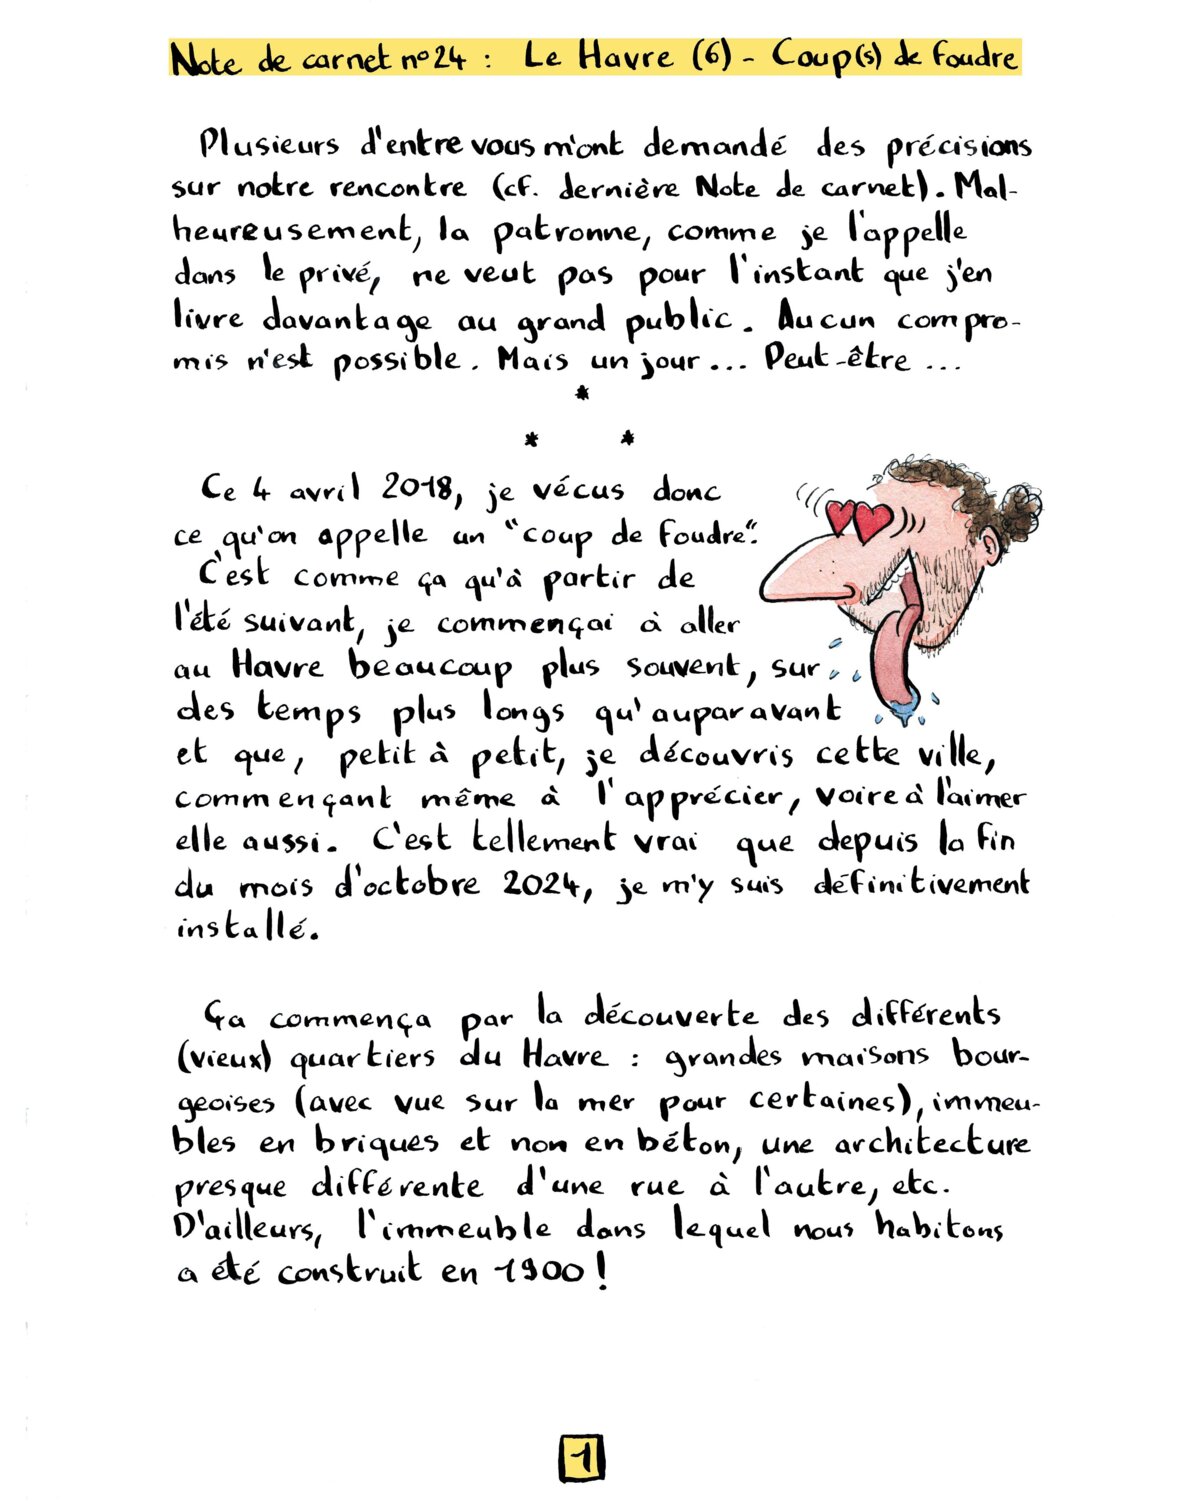 Note de carnet n°24 : Le Havre (6) - Coup(s) de foudre
Plusieurs d'entre vous m'ont demandé des précisions
sur notre rencontre (cf. dernière Note de carnet). Mal-
heureusement, la patronne, comme je l'appelle
dans le privé, ne veut pas pour l'instant que j'en
livre davantage au grand public. Aucun compro-
mis n'est possible. Mais un jour... Peut-être ...
*
* *
Ce 4 avril 2018, je vécus donc
ce qu'on appelle un "coup de foudre".
C'est comme ça qu'à partir de
l'été suivant, je commençai à aller
au Havre beaucoup plus souvent, sur
des temps plus longs qu'auparavant
et que, petit à petit, je découvris cette ville,
commençant même à l'apprécier, voire à l'aimer
elle aussi. C'est tellement vrai que depuis la fin
du mois d'octobre 2024, je m'y suis définitivement
installé.
Ça commença par la découverte des différents
(vieux) quartiers du Havre : grandes maisons bour-
geoises (avec vue sur la mer pour certaines), immeu-
bles en briques et non en béton, une architecture
presque différente d'une rue à l'autre, etc.
D'ailleurs, l'immeuble dans lequel nous habitons
a été construit en 1900 !
1